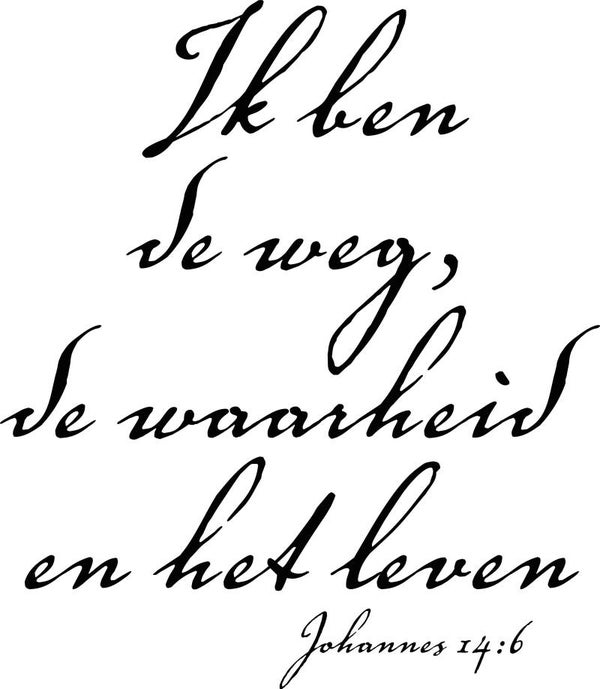 Ik ben
de weg,
de waarheid
en het leven
Johannes 14:6